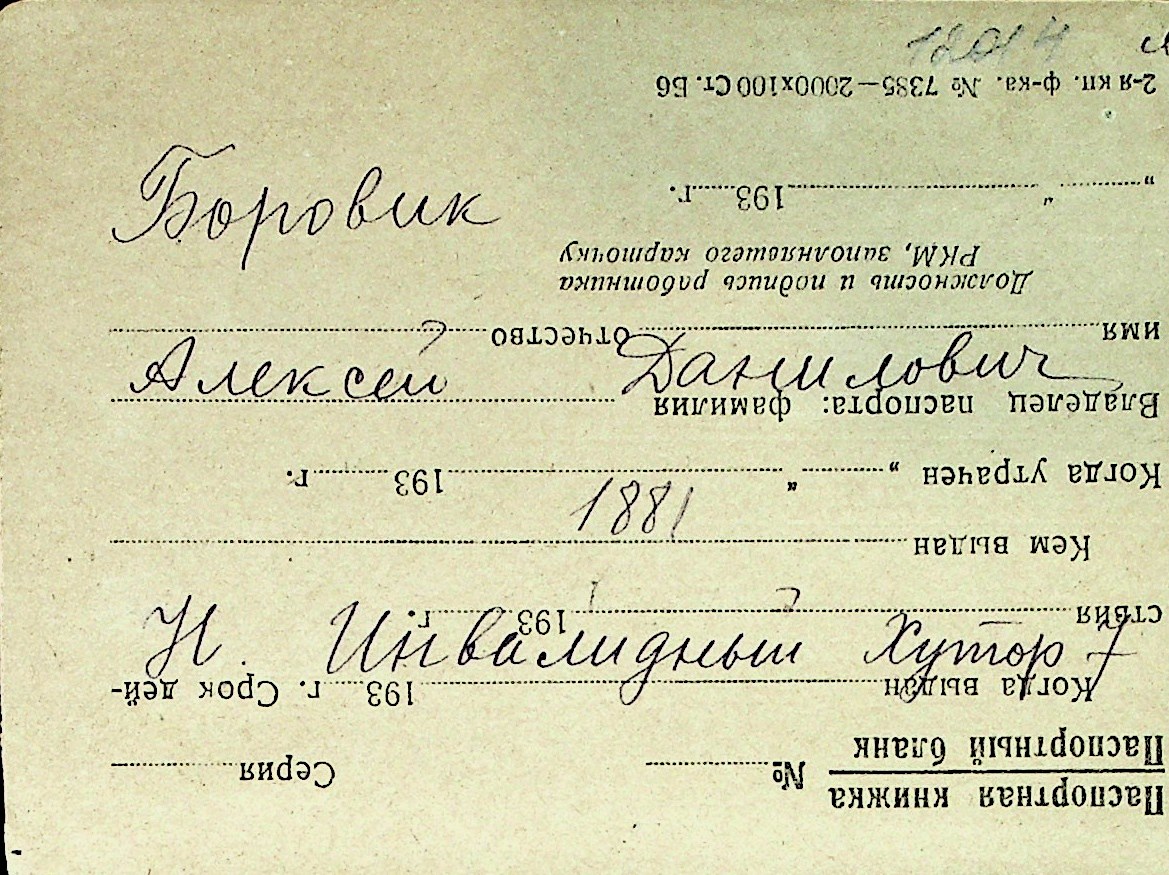 1204
Боровик
Алексей Данилович
1881
Н. Инвалидный Хутор 7
Паспортная книжка
Паспортный бланк
№ Серия
Когда выдан 193 г. Срок дей-
ствия 193 г.
Кем выдан
Когда утрачен „ “ 193 г.
Владелец паспорта: фамилия
имя отчество
Должность и подпись работника
РКМ, заполнявшего карточку
„ “ 193 г.
2-я кп. ф-ка. № 7385—2000х100 Ст. Б6